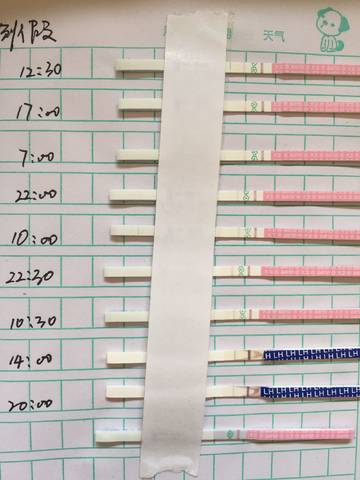 天气
12:30
17:00
7:00
22:00
10:00
22:30
10:30
14:00
LH LH LH LH LH LH
20:00
LH LH LH LH LH LH